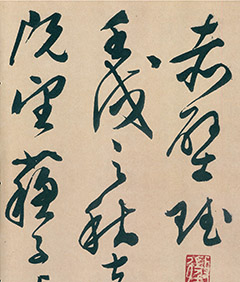 赤壁賦
壬戌之秋七
既望蘇子